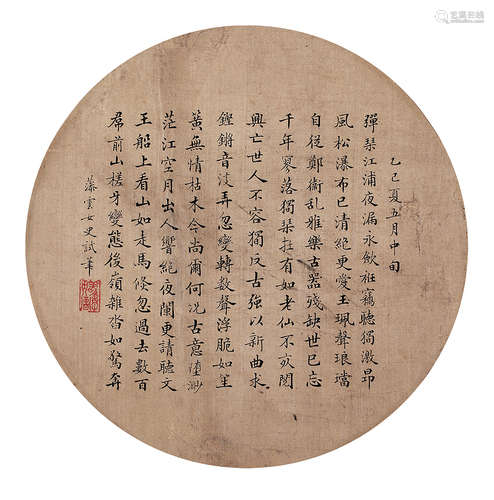 乙巳夏五月中旬
彈琴江浦夜漏永歛袵竊聽獨激昂
風松瀑布已清絕更愛玉珮聲琅璫
自從鄭衛乱雅樂古器殘缺世已忘
千年寥落獨琹在有如老仙不死閱
興亡世人不容獨反古強以新曲求
鏗鏘音波弄忽變轉數聲浮脆如笙
簧無情枯木今尚爾何况古意墮渺
茫江空月出人響絕夜闌更請聽文
王船上看山如走馬倏忽過去數百
羣前山槎牙變態後嶺雜沓如驚奔
藻雲女史試筆